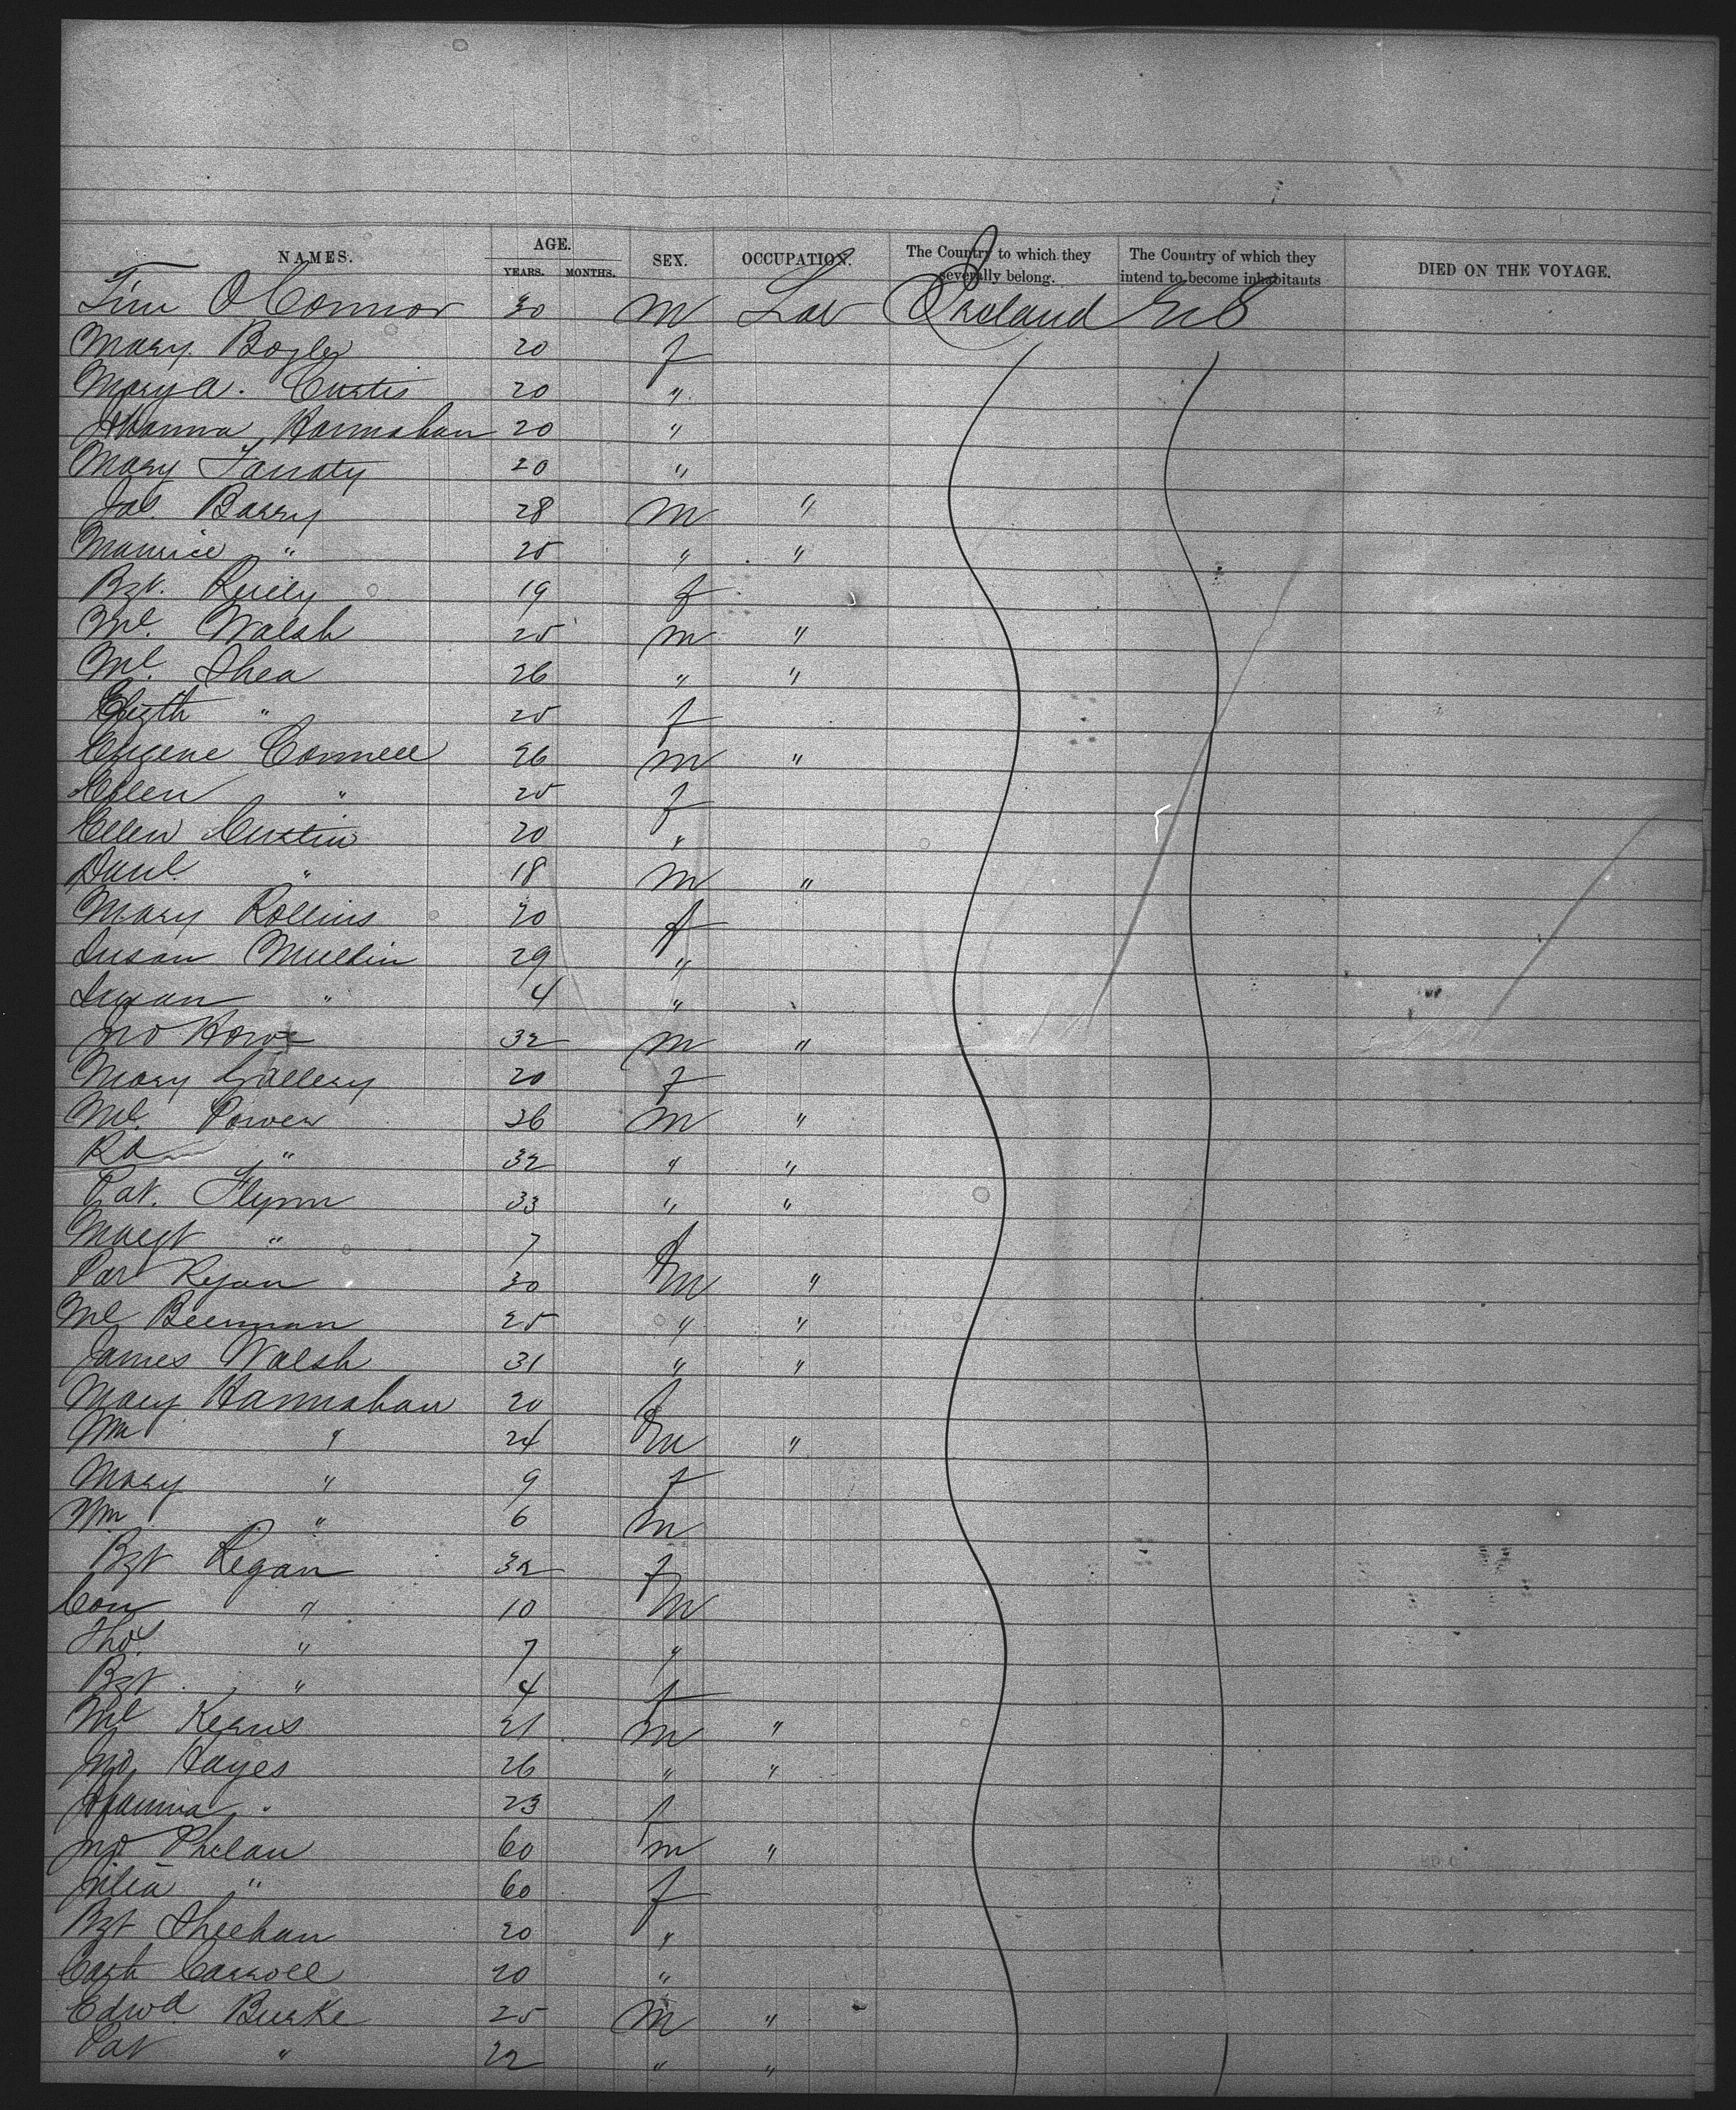 NAMES. AGE. YEARS. MONTHS. SEX. OCCUPATION. The Country to which they severally belong. The Country of which they intend to become inhabitants DIED ON THE VOYAGE.
Tim O'Connor 30 m Lab Ireland U S
Mary Bogley 20 f
Mary A. Curtis 20 "
Johanna Hannahan 20 "
Mary Tarraty 20 "
Jas. Barry 28 m "
Maurice " 25 " "
Bgt. Reily 19 f
Ml. Walsh 25 m "
Ml. Shea 26 " "
Elizth " 25 f
Eugene Connell 26 m "
Ellen " 25 f
Ellen Curtin 20 "
Danl. " 18 m "
Mary Rollins 20 f
Susan Mullin 29 "
Susan " 4 "
Jno Howe 32 m "
Mary Gallery 20 f
Ml. Power 26 m "
Rd " 32 " "
Pat. Flynn 33 " "
Margt " 7 f
Pat Ryan 30 m "
Ml Brennan 25 " "
James Walsh 31 " "
Mary Hannahan 20 f
Wm " 24 m "
Mary " 9 f
Wm " 6 m
Bgt Regan 32 f
Con " 10 m
Thos " 7 "
Bgt " 4 f
Ml Kerns 21 m "
Jno Hayes 26 " "
Johanna " 23 f
Jno Phelan 60 m "
Julia " 60 f
Bgt Sheehan 20 "
Cath Carroll 20 "
Edwd Burke 25 m "
Pat " 22 " "